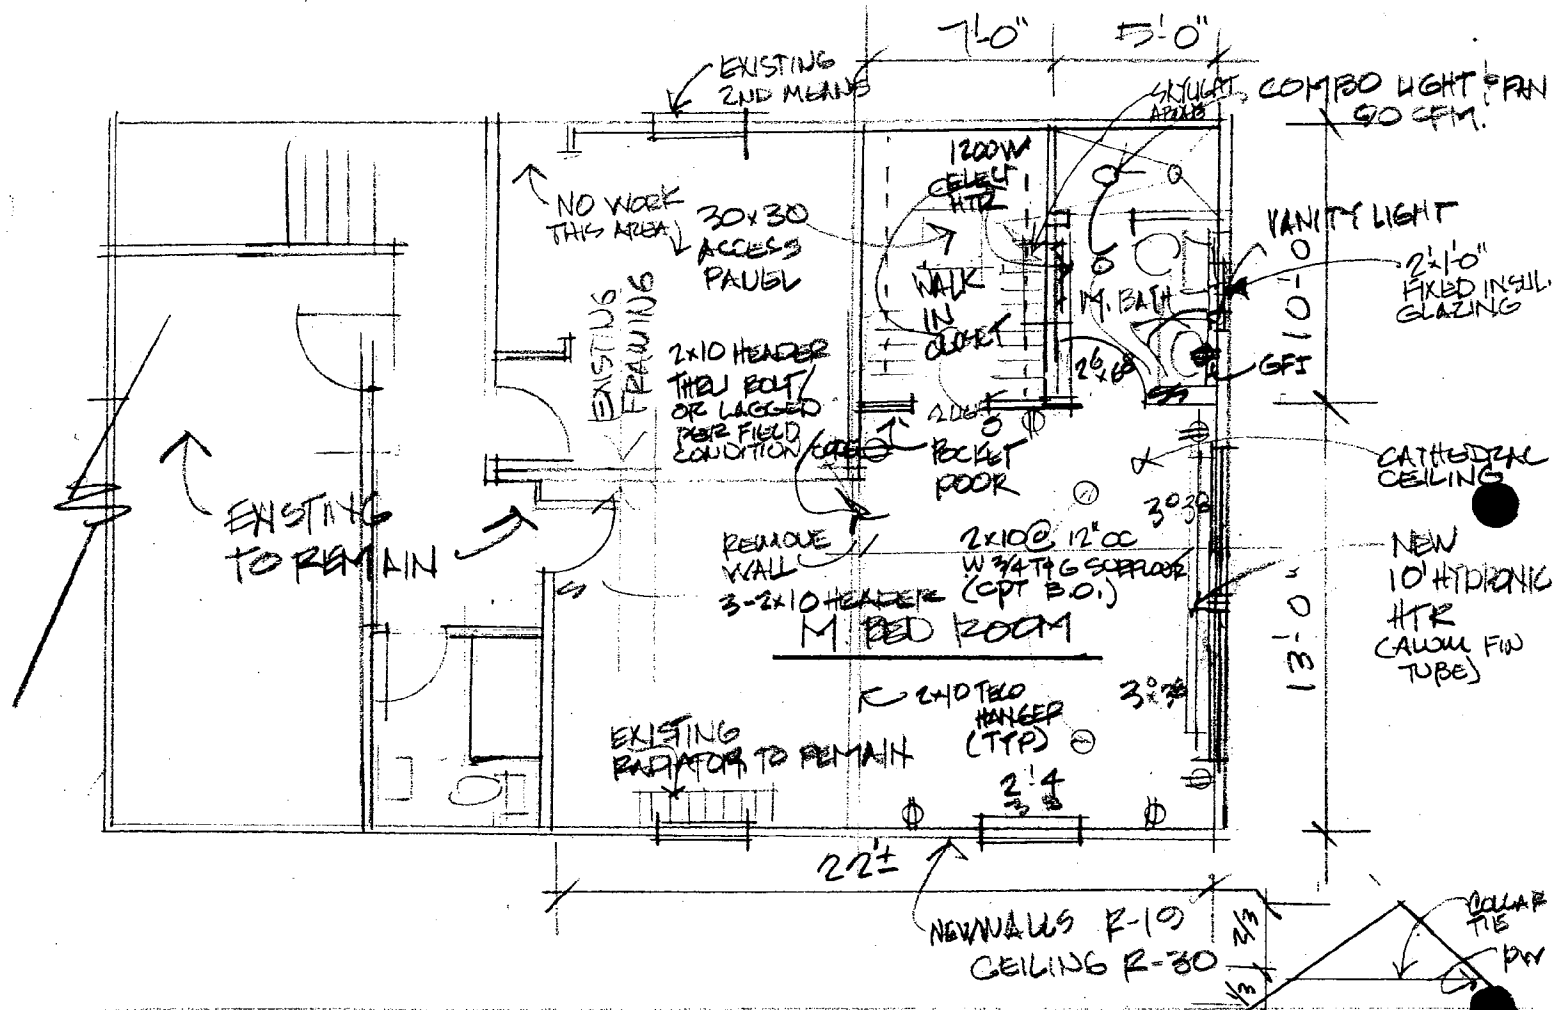 7'-0"
5'-0"
EXISTING
2ND MEANS
SKYLIGHT
ABOVE
COMBO LIGHT & FAN
90 CFM.
1200W
ELECT
HTR
NO WORK
THIS AREA
30x30
ACCESS
PANEL
VANITY LIGHT
2'x1'-0"
FIXED INSUL.
GLAZING
10'-0"
WALK
IN
CLOSET
M. BATH
EXISTNG
FRAMING
2x10 HEADER
THRU BOLT
OR LAGGED
PER FIELD
CONDITION/CODE
2⁶x6⁸
GFI
2068
POCKET
DOOR
CATHEDRAL
CEILING
EXISTING
TO REMAIN
REMOVE
WALL
3-2x10 HEADER
2x10 @ 12" OC
W 3/4 T&G SUBFLOOR
(CPT B.O.)
3⁰ 3⁸
NEW
10' HYDRONIC
HTR
(ALUM FIN
TUBE)
M. BED ROOM
13'-0"
2x10 TECO
HANGER
(TYP)
3⁰x3⁸
EXISTING
RADIATOR TO REMAIN
2'4
3 8
22'±
NEW WALLS R-19
CEILING R-30
2/3
1/3
COLLAR
TIE